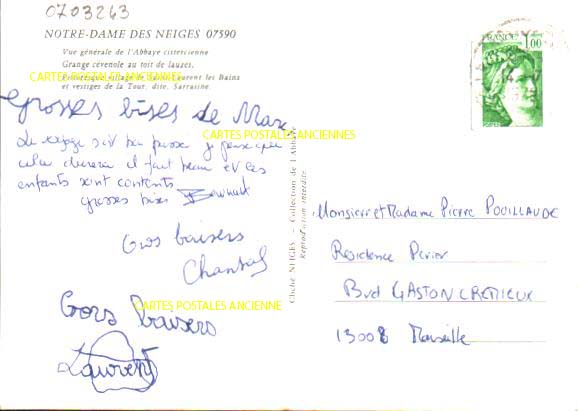 0703263
NOTRE-DAME DES NEIGES 07590
Vue générale de l'Abbaye cistercienne
Grange cévenole au toit de lauzes.
CARTES POSTALES ANCIENNES
Pittoresque village de Saint-Laurent les Bains
et vestiges de la Tour, dite, Sarrasine.
Grosses bises de Marc
CARTES POSTALES ANCIENNES
Le voyage s'est bien passé je pense que
celui durera il fait beau et les
enfants sont contents
grosses bises
Gros baisers
Chantal
CARTES POSTALES ANCIENNE
Gors baisers
Laurent
Cliché NEIGES - Collection de l'Abbaye
Reproduction interdite
FRANCE 1,00
Monsieur et Madame Pierre POUILLAUDE
Residence Périer
Bvd GASTON CREMIEUX
13008 Marseille